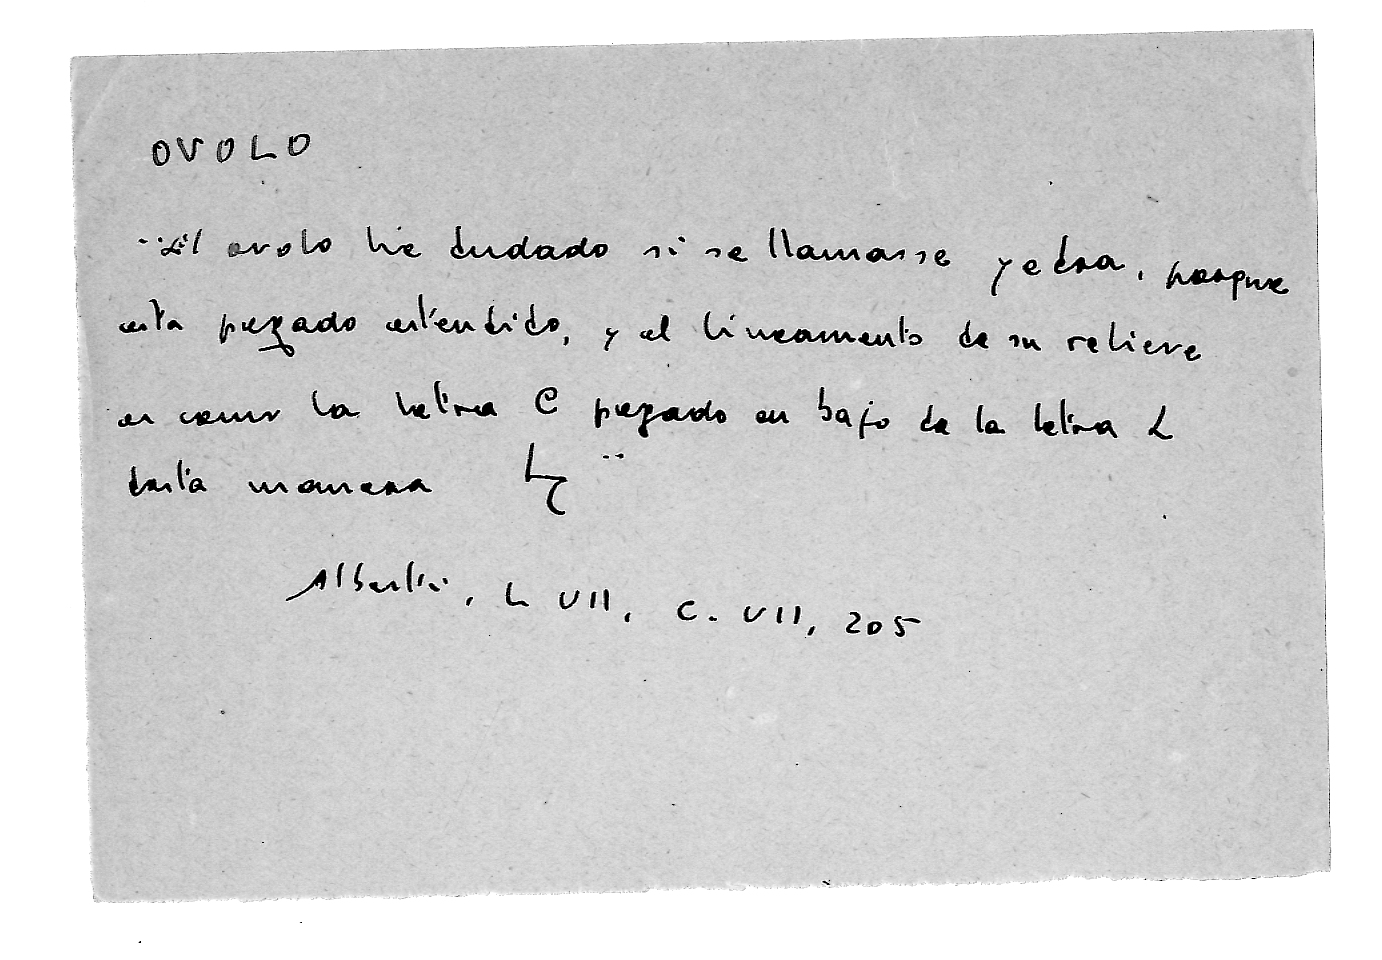 OVOLO
"El ovolo he dudado si se llamasse yedra, porque
esta pegado estendido, y el lineamento de su relieve
es como la letra C pegado en bajo de la letra L
desta manera "
Alberti, L VII, C. VII, 205